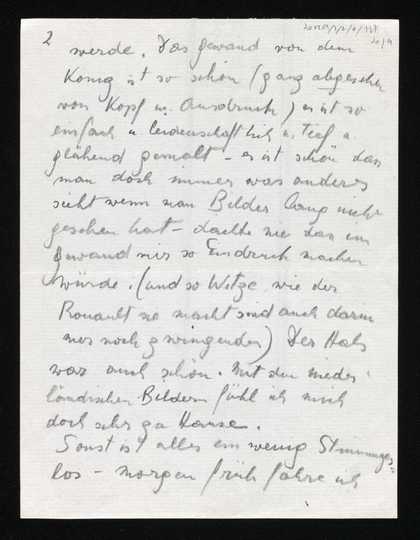 2
werde. Das gewand von dem
König ist so schön (ganz abgesehen
von Kopf u. Ausdruck) es ist so
einfach u. leidenschaftlich u. tief u.
glühend gemalt – es ist schön dass
man doch immer was anderes
sieht wenn man Bilder lang nicht
gesehen hat – dachte nie das ein
Gewand mir so Eindruck machen
würde. (und so Witze wie der
Rouault sie macht sind auch darin
nur noch zwingender) Der Hals
war auch schön. Mit den nieder-
ländischen Bildern fühl ich mich
doch sehr zu Hause.
Sonst ist alles ein wenig Stimmungs=
los – morgen früh fahre ich